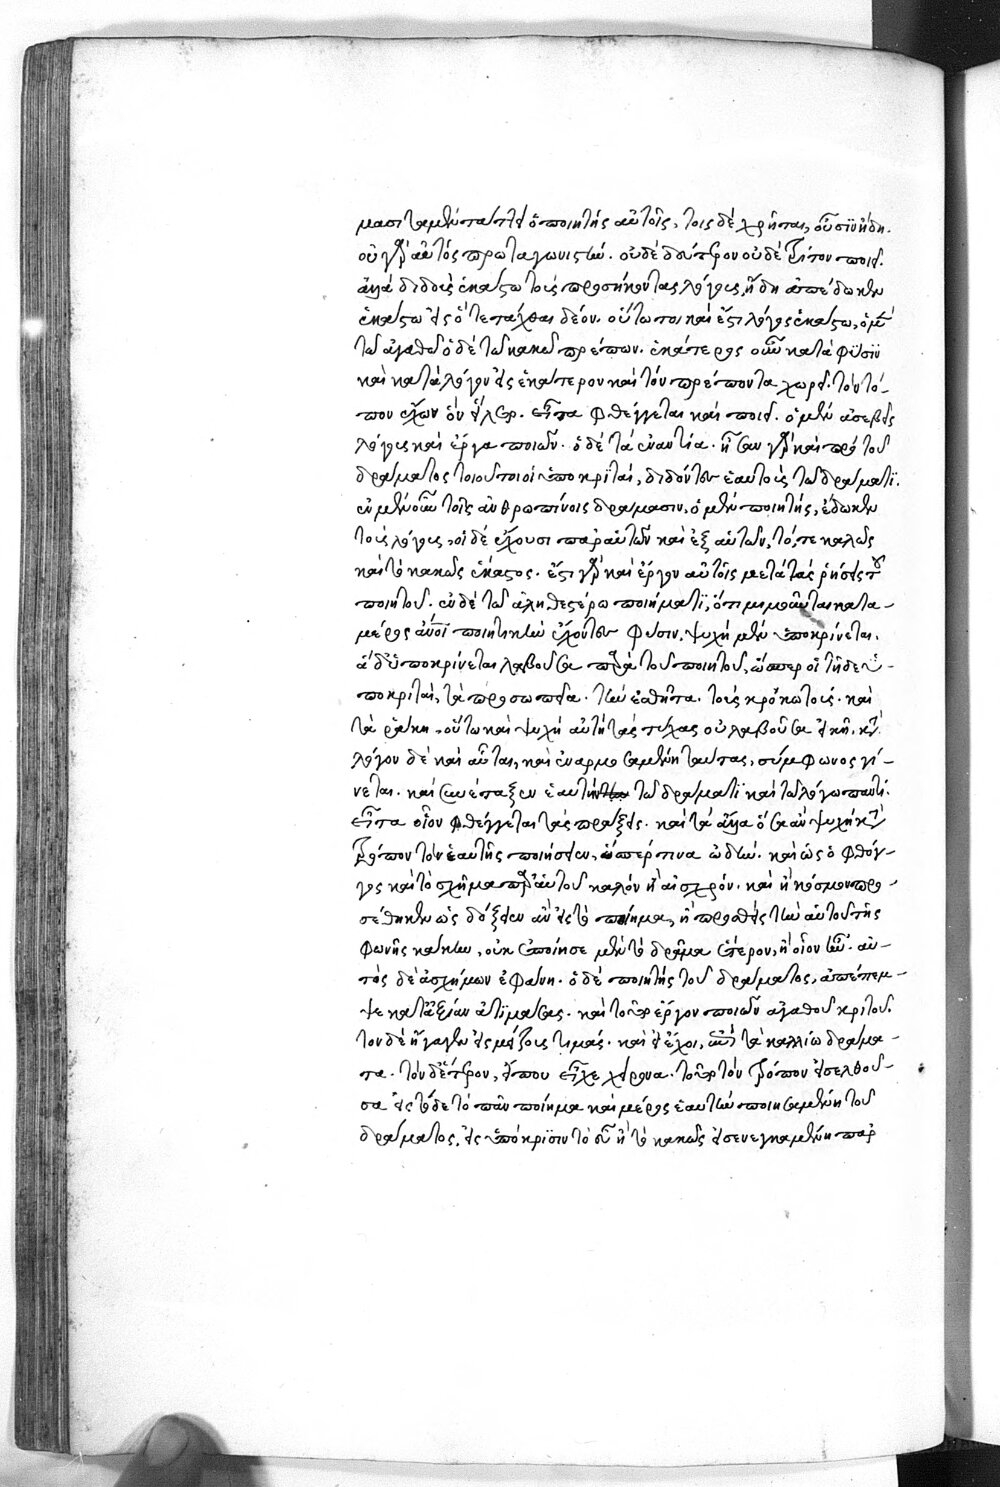 μασι τὰ μὲν τάττει ὁ ποιητὴς αὐτοῖς, τοῖς δὲ χρῆται, οὖσιν ἤδη.
οὐ γὰρ αὐτὸς πρωταγωνιστήν. οὐδὲ δεύτερον οὐδὲ τρίτον ποιεῖ.
ἀλλὰ διδοὺς ἑκάστω τοὺς προσήκοντας λόγους, ἤδη ἀπέδωκεν
ἑκάστω εἰς ὃ τετάχθαι δέον. οὕτω τοι καὶ ἔστι λόγος ἑκάστω, ὁ μὲν
τῶ ἀγαθῶ ὁ δὲ τῶ κακῶ πρέπων. ἑκάτερος οὖν κατὰ φύσιν
καὶ κατὰ λόγον εἰς ἑκάτερον καὶ τὸν πρέποντα χωρεῖ. τὸν τό-
πον ἔχων ὃν εἵλετο. εἶτα φθέγγεται καὶ ποιεῖ. ὁ μὲν ἀσεβεῖς
λόγους καὶ ἔργα ποιῶν. ὁ δὲ τὰ ἐναντία. ἦσαν γὰρ καὶ πρὸ τοῦ
δράματος τοιοῦτοι οἱ ὑποκριταὶ, διδόντες ἑαυτοὺς τῶ δράματι.
ἐν μὲν οὖν τοῖς ἀνθρωπίνοις δράμασιν, ὁ μὲν ποιητὴς, ἔδωκεν
τοὺς λόγους, οἱ δὲ ἔχουσι παρ' αὑτῶν καὶ ἐξ αὑτῶν, τό, τε καλῶς
καὶ τὸ κακῶς ἕκαστος. ἔστι γὰρ καὶ ἔργον αὐτοῖς μετὰ τὰς ῥήσεις τοῦ
ποιητοῦ. ἐν δὲ τῶ ἀληθεστέρω ποιήματι, ὅτι μιμοῦνται κατα-
μέρος ἄνοι ποιητικὴν ἔχοντες φύσιν, ψυχὴ μὲν ὑποκρίνεται.
ἃ δ' ὑποκρίνεται λαβοῦσα παρὰ τοῦ ποιητοῦ, ὥσπερ οἱ τῆδε ὑ-
ποκριταὶ, τὰ προσωπεῖα. τὴν ἐσθῆτα. τοὺς κροκωτούς. καὶ
τὰ ῥάκη. οὕτω καὶ ψυχὴ αὐτὴ τὰς τύχας οὐ λαβοῦσα εἰκῆ. κατὰ
λόγον δὲ καὶ αὗται, καὶ ἐναρμοσαμένη ταύτας, σύμφωνος γί-
νεται. καὶ συνέταξεν ἑαυτὴν τῶ δράματι καὶ τῶ λόγω παντί.
εἶτα οἷον φθέγγεται τὰς πράξεις. καὶ τὰ ἄλλα ὅσα ἂν ψυχὴ κατὰ
τρόπον τὸν ἑαυτῆς ποιήσειεν, ὥσπερ τινα ὠδήν. καὶ ὡς ὁ φθόγ-
γος καὶ τὸ σχῆμα παρ' αὑτοῦ καλὸν ἢ αἰσχρόν. καὶ ἢ κόσμον προ-
σέθηκεν ὡς δόξειεν ἂν εἰς τὸ ποίημα, ἢ προσθεὶς τὴν αὑτοῦ τῆς
φωνῆς κάκην, οὐκ ἐποίησε μὲν τὸ δρᾶμα ἕτερον, ἢ οἷον ἦν. αὐ-
τὸς δὲ ἀσχήμων ἐφάνη. ὁ δὲ ποιητὴς τοῦ δράματος, ἀπέπεμ-
ψε κατ' ἀξίαν ἀτιμάσας. καὶ τοῦτ' ἔργον ποιῶν ἀγαθοῦ κριτοῦ.
τὸν δὲ ἤγαγεν εἰς μείζους τιμάς. καὶ εἰ ἔχοι, ἐπὶ τὰ καλλίω δράμα-
τα. τὸν δ' ἕτερον, εἴπου εἶχε χείρονα. τοῦτον τὸν τρόπον εἰσελθοῦ-
σα εἰς τόδε τὸ πᾶν ποίημα καὶ μέρος ἑαυτὴν ποιησαμένη τοῦ
δράματος, εἰς ὑπόκρισιν τὸ εὖ ἢ τὸ κακῶς εἰσενεγκαμένη παρ'